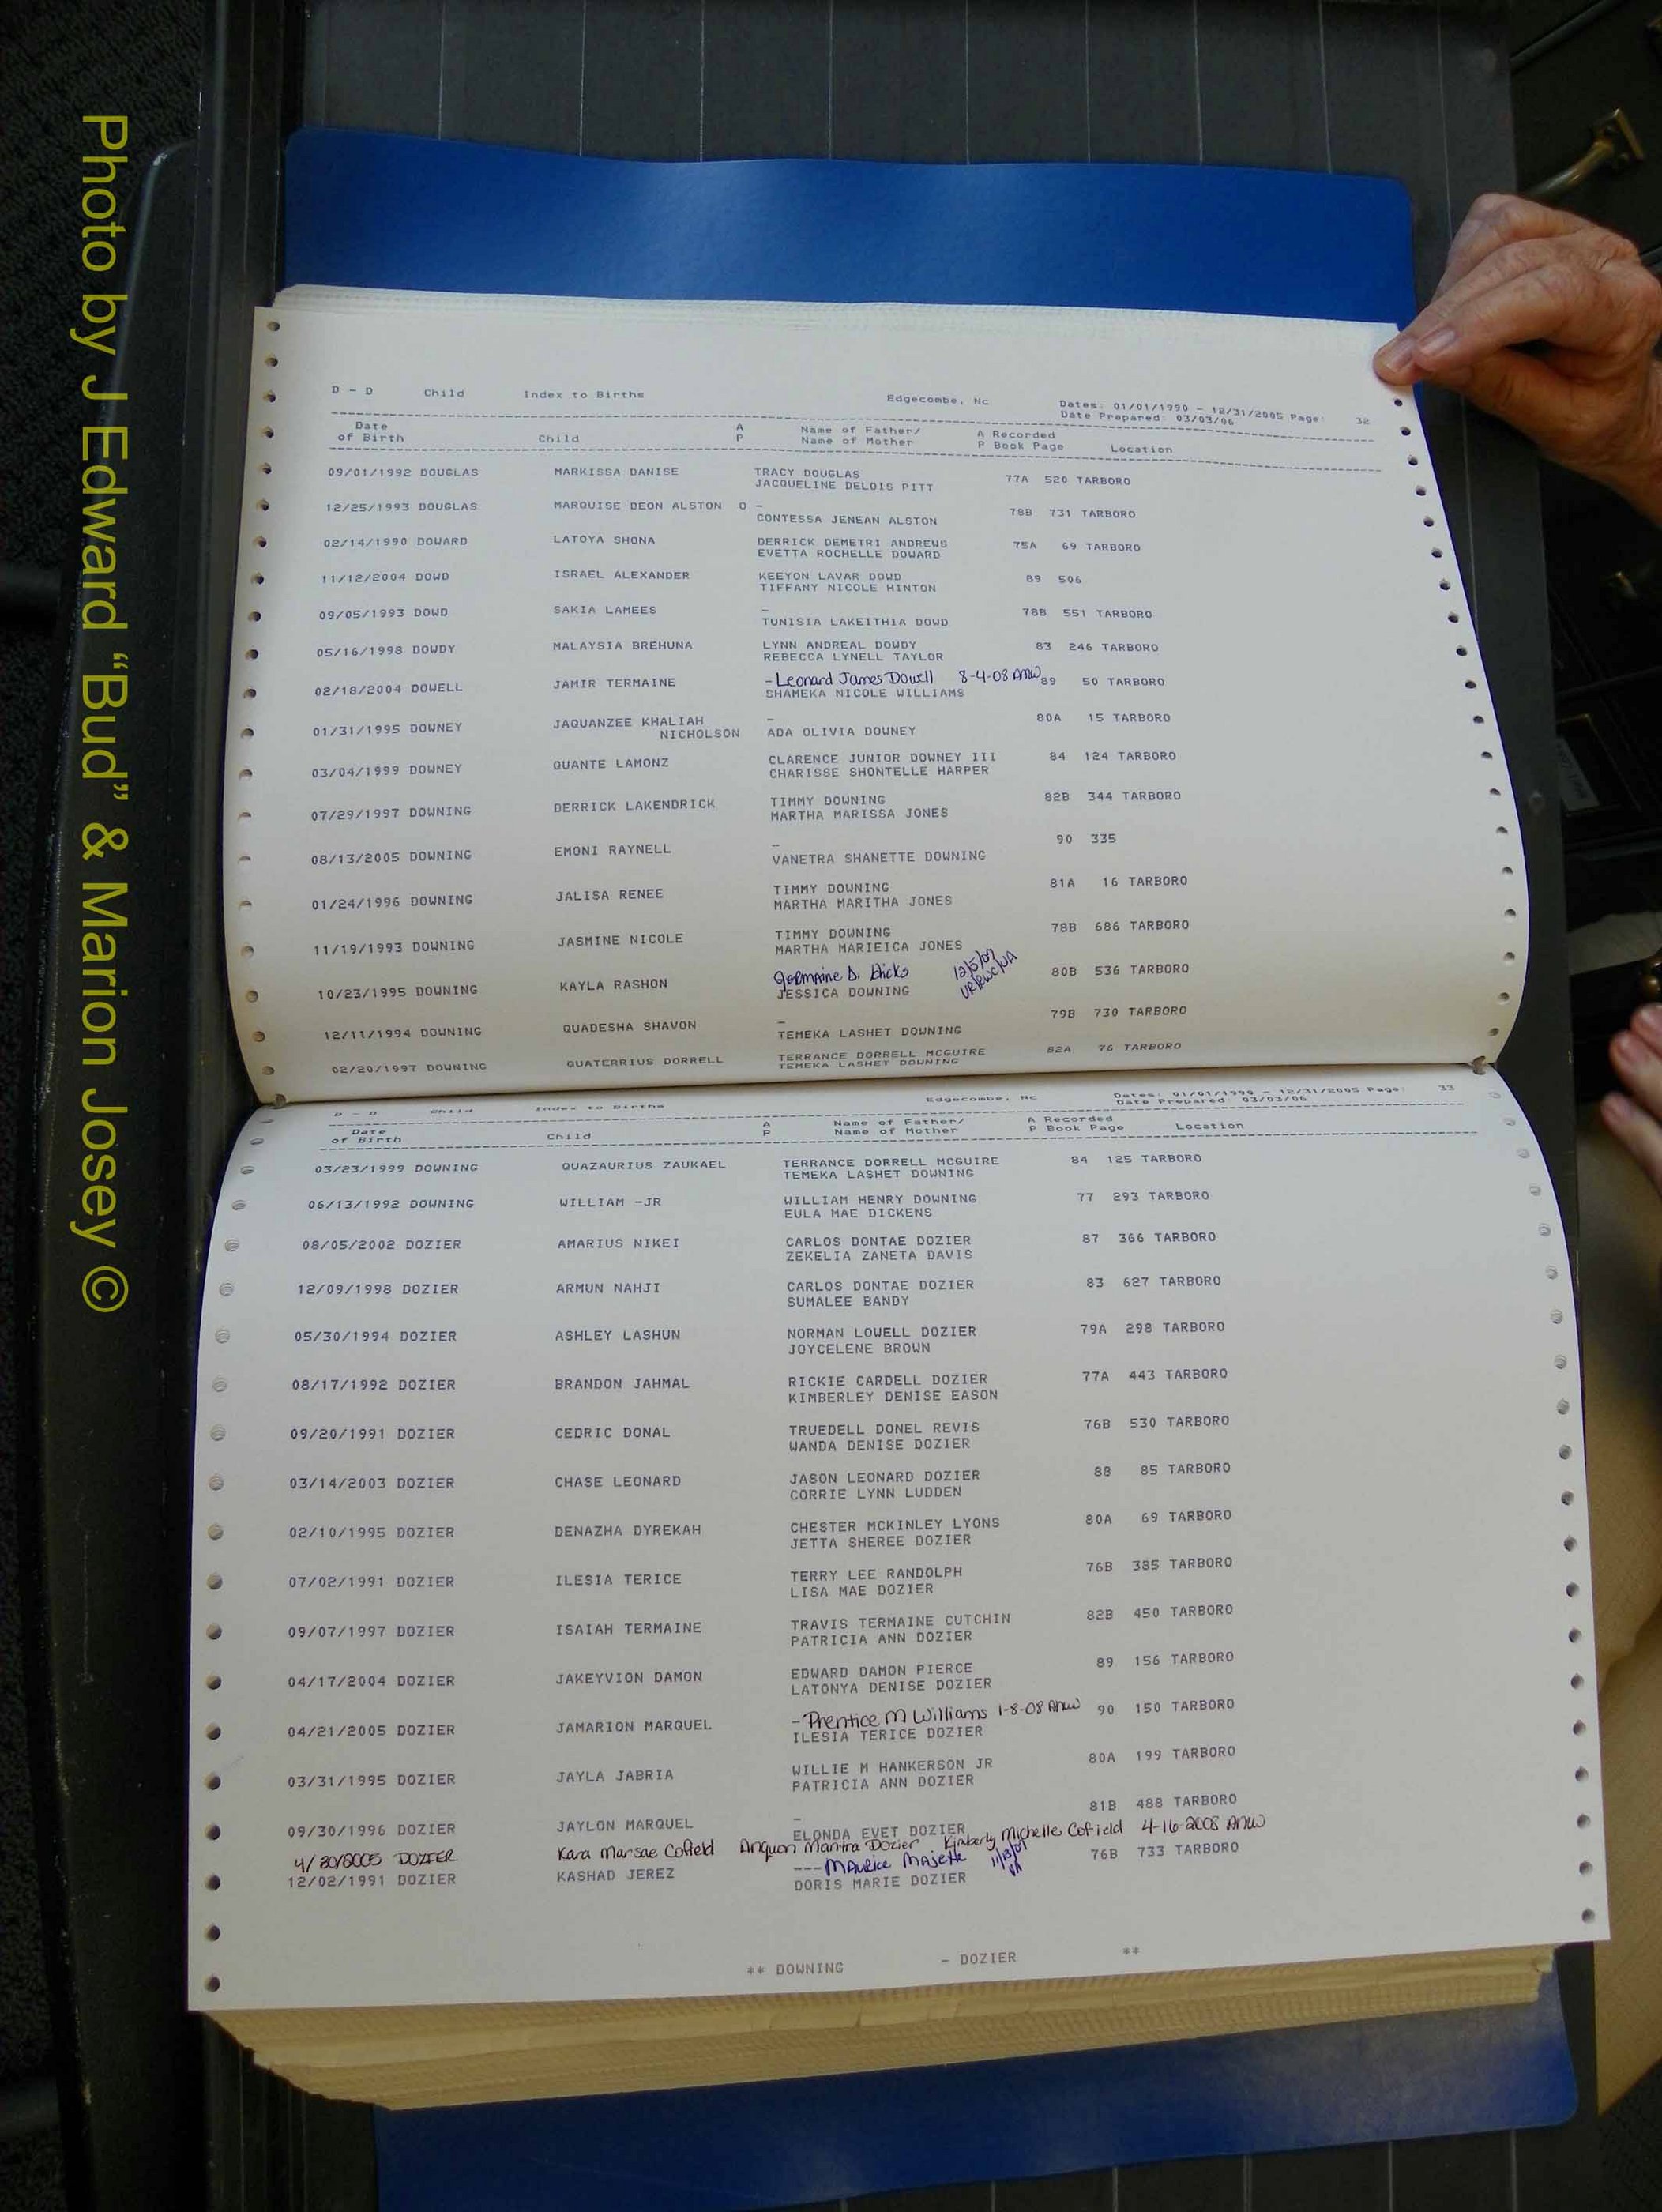 Photo by J Edward “Bud” & Marion Josey ©
D - D Child Index to Births Edgecombe, Nc Dates: 01/01/1990 - 12/31/2005 Page: 32
Date Prepared: 03/03/06
Date A Name of Father/ A Recorded
of Birth Child P Name of Mother P Book Page Location
09/01/1992 DOUGLAS MARKISSA DANISE TRACY DOUGLAS 77A 520 TARBORO
JACQUELINE DELOIS PITT
12/25/1993 DOUGLAS MARQUISE DEON ALSTON O - 78B 731 TARBORO
CONTESSA JENEAN ALSTON
02/14/1990 DOWARD LATOYA SHONA DERRICK DEMETRI ANDREWS 75A 69 TARBORO
EVETTA ROCHELLE DOWARD
11/12/2004 DOWD ISRAEL ALEXANDER KEEYON LAVAR DOWD 89 506
TIFFANY NICOLE HINTON
09/05/1993 DOWD SAKIA LAMEES - 78B 551 TARBORO
TUNISIA LAKEITHIA DOWD
05/16/1998 DOWDY MALAYSIA BREHUNA LYNN ANDREAL DOWDY 83 246 TARBORO
REBECCA LYNELL TAYLOR
02/18/2004 DOWELL JAMIR TERMAINE - Leonard James Dowell 8-4-08 AMW 89 50 TARBORO
SHAMEKA NICOLE WILLIAMS
01/31/1995 DOWNEY JAQUANZEE KHALIAH - 80A 15 TARBORO
NICHOLSON ADA OLIVIA DOWNEY
03/04/1999 DOWNEY QUANTE LAMONZ CLARENCE JUNIOR DOWNEY III 84 124 TARBORO
CHARISSE SHONTELLE HARPER
07/29/1997 DOWNING DERRICK LAKENDRICK TIMMY DOWNING 82B 344 TARBORO
MARTHA MARISSA JONES
08/13/2005 DOWNING EMONI RAYNELL - 90 335
VANETRA SHANETTE DOWNING
01/24/1996 DOWNING JALISA RENEE TIMMY DOWNING 81A 16 TARBORO
MARTHA MARITHA JONES
11/19/1993 DOWNING JASMINE NICOLE TIMMY DOWNING 78B 686 TARBORO
MARTHA MARIEICA JONES
10/23/1995 DOWNING KAYLA RASHON Jermaine D. Hicks 12/5/07 80B 536 TARBORO
JESSICA DOWNING
12/11/1994 DOWNING QUADESHA SHAVON - 79B 730 TARBORO
TEMEKA LASHET DOWNING
02/20/1997 DOWNING QUATERRIUS DORRELL TERRANCE DORRELL MCGUIRE 82A 76 TARBORO
TEMEKA LASHET DOWNING
D - D Child Index to Births Edgecombe, Nc Dates: 01/01/1990 - 12/31/2005 Page: 33
Date Prepared 03/03/06
Date A Name of Father/ A Recorded
of Birth Child P Name of Mother P Book Page Location
03/23/1999 DOWNING QUAZAURIUS ZAUKAEL TERRANCE DORRELL MCGUIRE 84 125 TARBORO
TEMEKA LASHET DOWNING
06/13/1992 DOWNING WILLIAM -JR WILLIAM HENRY DOWNING 77 293 TARBORO
EULA MAE DICKENS
08/05/2002 DOZIER AMARIUS NIKEI CARLOS DONTAE DOZIER 87 366 TARBORO
ZEKELIA ZANETA DAVIS
12/09/1998 DOZIER ARMUN NAHJI CARLOS DONTAE DOZIER 83 627 TARBORO
SUMALEE BANDY
05/30/1994 DOZIER ASHLEY LASHUN NORMAN LOWELL DOZIER 79A 298 TARBORO
JOYCELENE BROWN
08/17/1992 DOZIER BRANDON JAHMAL RICKIE CARDELL DOZIER 77A 443 TARBORO
KIMBERLEY DENISE EASON
09/20/1991 DOZIER CEDRIC DONAL TRUEDELL DONEL REVIS 76B 530 TARBORO
WANDA DENISE DOZIER
03/14/2003 DOZIER CHASE LEONARD JASON LEONARD DOZIER 88 85 TARBORO
CORRIE LYNN LUDDEN
02/10/1995 DOZIER DENAZHA DYREKAH CHESTER MCKINLEY LYONS 80A 69 TARBORO
JETTA SHEREE DOZIER
07/02/1991 DOZIER ILESIA TERICE TERRY LEE RANDOLPH 76B 385 TARBORO
LISA MAE DOZIER
09/07/1997 DOZIER ISAIAH TERMAINE TRAVIS TERMAINE CUTCHIN 82B 450 TARBORO
PATRICIA ANN DOZIER
04/17/2004 DOZIER JAKEYVION DAMON EDWARD DAMON PIERCE 89 156 TARBORO
LATONYA DENISE DOZIER
04/21/2005 DOZIER JAMARION MARQUEL - Prentice M Williams 1-8-08 AMW 90 150 TARBORO
ILESIA TERICE DOZIER
03/31/1995 DOZIER JAYLA JABRIA WILLIE M HANKERSON JR 80A 199 TARBORO
PATRICIA ANN DOZIER
09/30/1996 DOZIER JAYLON MARQUEL - 81B 488 TARBORO
ELONDA EVET DOZIER
4/30/2005 DOZIER Kara Marsae Cofield Anquan Mantra Dozier Kimberly Michelle Cofield 4-16-2008 AMW
12/02/1991 DOZIER KASHAD JEREZ --- Maurice Majette 76B 733 TARBORO
DORIS MARIE DOZIER
** DOWNING - DOZIER **